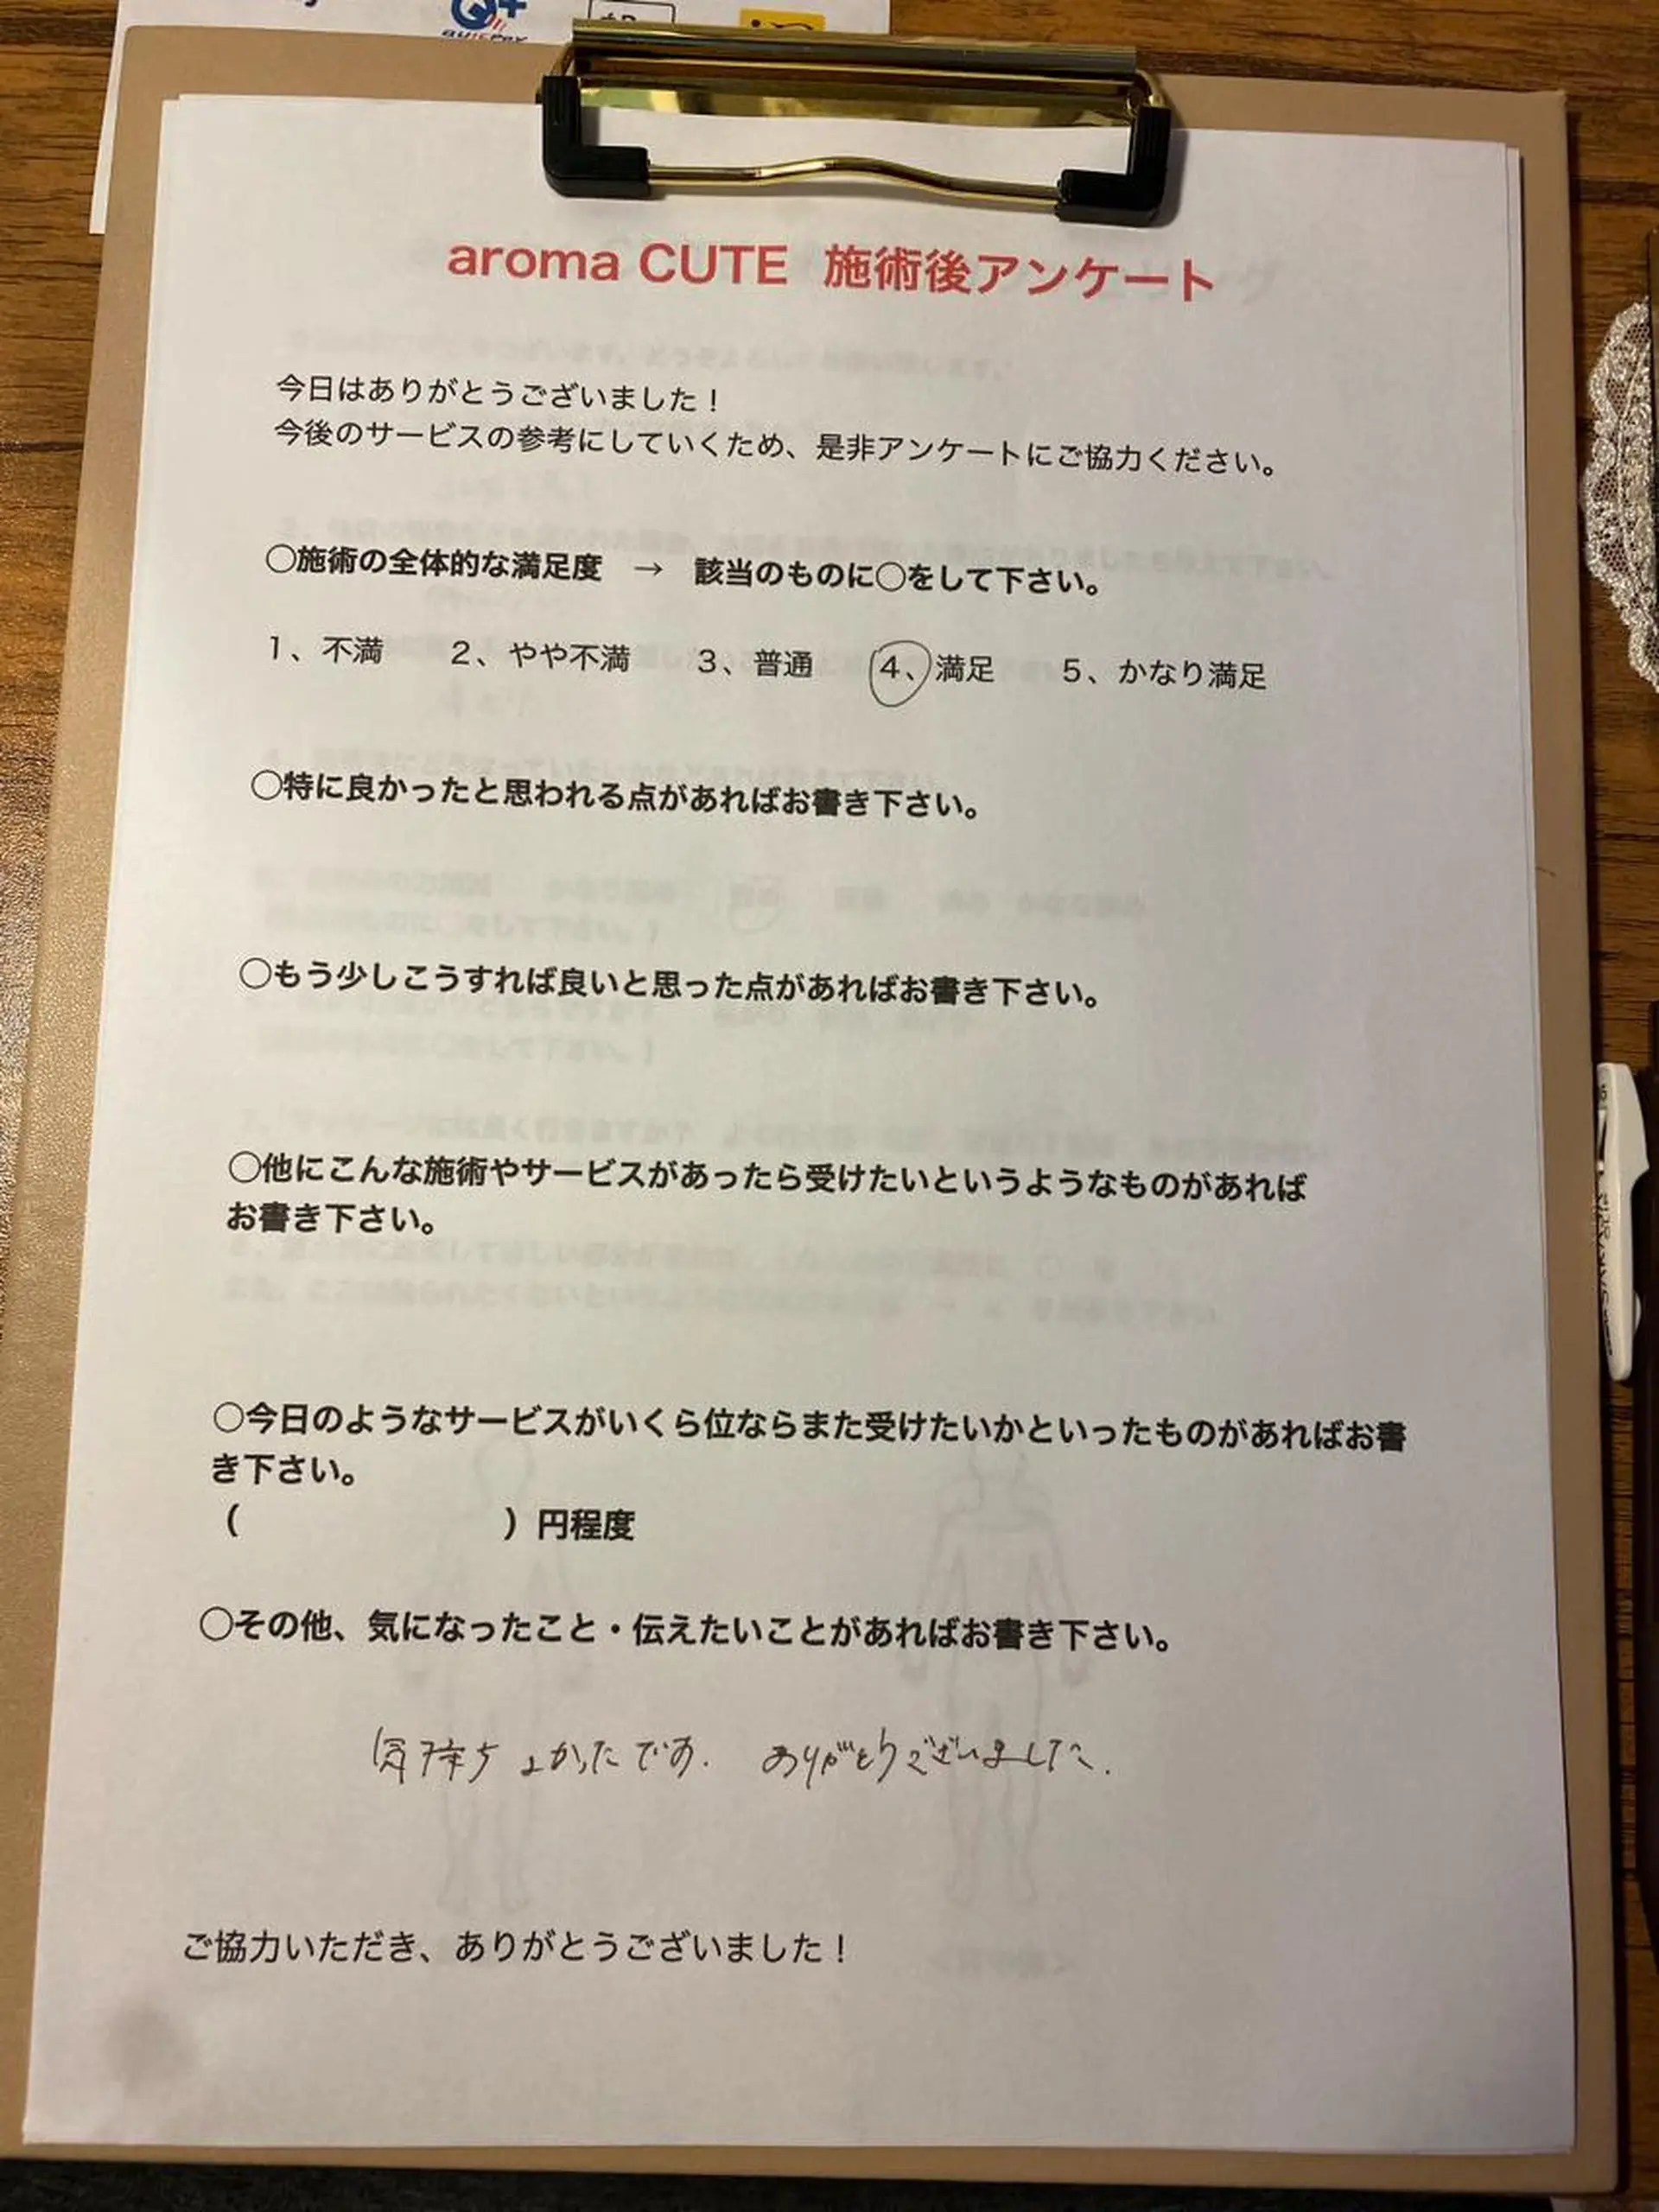 aroma CUTE 施術後アンケート
今日はありがとうございました！
今後のサービスの参考にしていくため、是非アンケートにご協力ください。
〇施術の全体的な満足度　→　該当のものに〇をして下さい。
１、不満　２、やや不満　３、普通　４、満足　５、かなり満足
〇特に良かったと思われる点があればお書き下さい。
〇もう少しこうすれば良いと思った点があればお書き下さい。
〇他にこんな施術やサービスがあったら受けたいというようなものがあれば
お書き下さい。
〇今日のようなサービスがいくら位ならまた受けたいかといったものがあればお書
き下さい。
（　　　　　　　　）円程度
〇その他、気になったこと・伝えたいことがあればお書き下さい。
気持ちよかったです．ありがとうございました．
ご協力いただき、ありがとうございました！